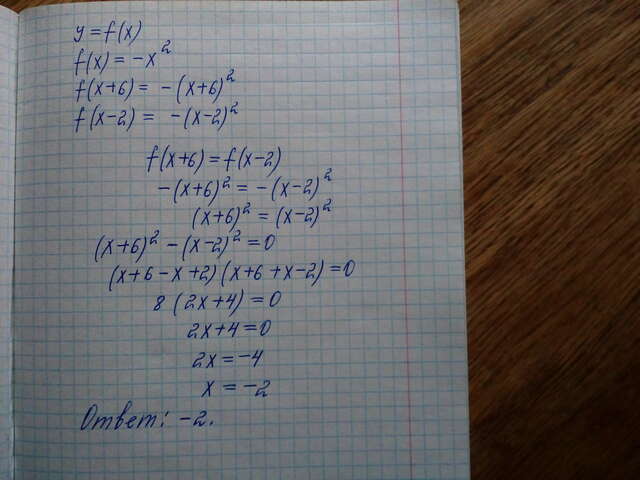 y = f(x)
f(x) = -x²
f(x+6) = -(x+6)²
f(x-2) = -(x-2)²
f(x+6) = f(x-2)
-(x+6)² = -(x-2)²
(x+6)² = (x-2)²
(x+6)² - (x-2)² = 0
(x+6-x+2)(x+6+x-2) = 0
8(2x+4) = 0
2x+4 = 0
2x = -4
x = -2
Ответ: -2.